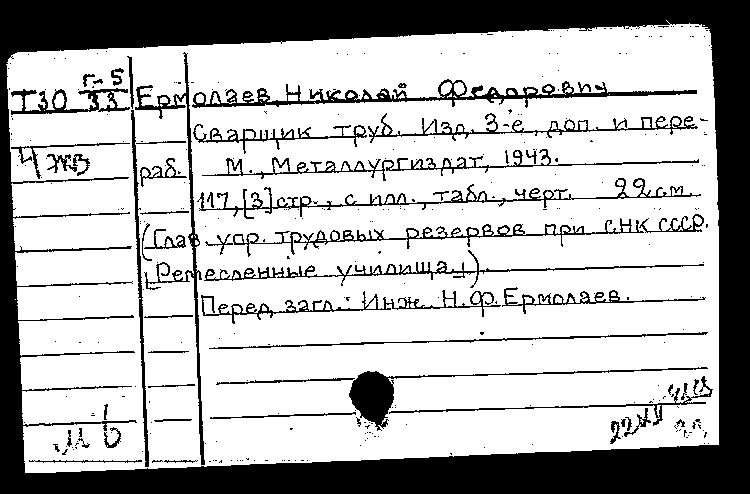 Т30 Г-5/33 Ермолаев, Николай Федорович
Сварщик труб. Изд. 3-е, доп. и пере-
раб. М., Металлургиздат, 1943.
117, [3] стр., с илл., табл., черт. 22 см.
(Глав. упр. трудовых резервов при СНК СССР.
[Ремесленные училища]).
Перед загл.: Инж. Н.Ф. Ермолаев.